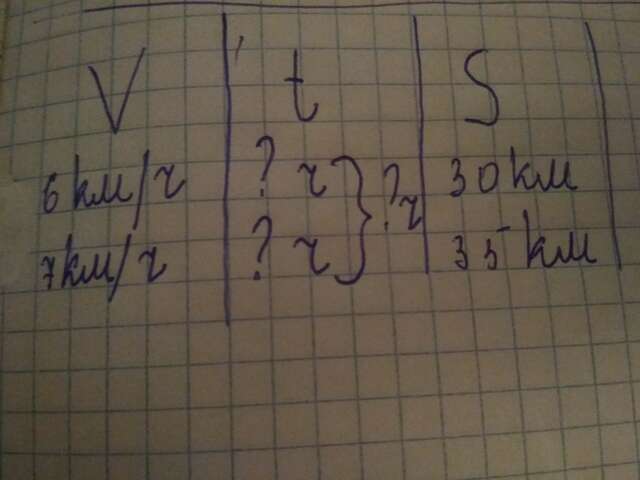 V t S
6 км/ч ? ч ? ч 30 км
7 км/ч ? ч 35 км